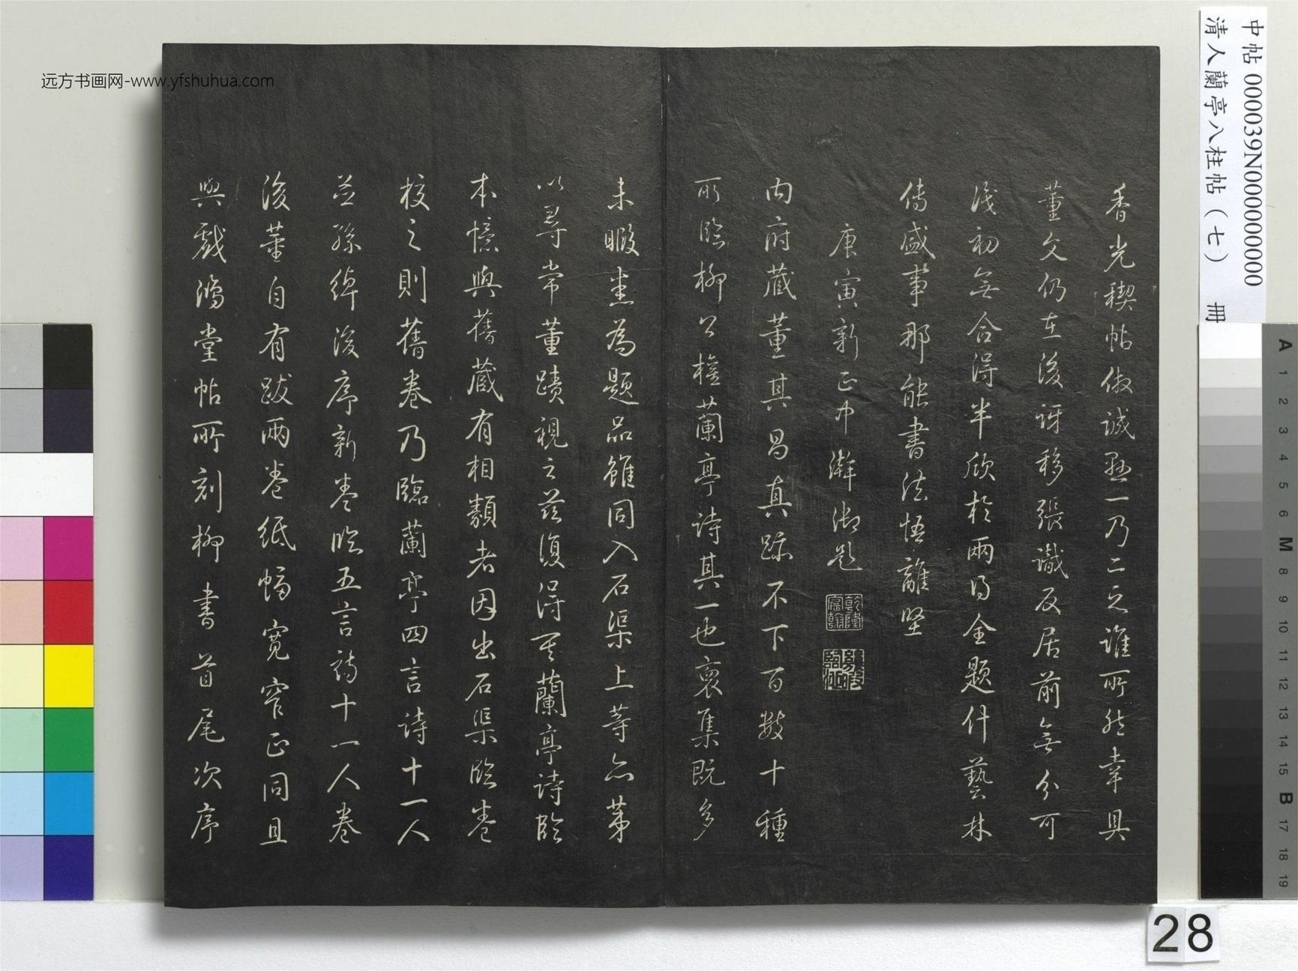 远方书画网-www.yfshuhua.com
中帖 000039N000000000
清人蘭亭八柱帖（七） 冊
香光禊帖倣誠懸一乃二之誰所然幸具
董文仍在後訝移張識反居前無分可
淺初無合浔半欣於兩得全題什藝林
傳盛事那能書法悟離堅
庚寅新正中澣御題
內府蔵董其昌真蹟不下百數十種
所臨柳公權蘭亭诗其一也裒集既多
未暇悉為題品雖同入石渠上等亦第
以尋常董蹟視之茲復浔其蘭亭诗臨
本憶與舊蔵有相類者因出石渠臨卷
校之則舊卷乃臨蘭亭四言诗十一人
並孫綽後序新卷臨五言詩十一人卷
後董自有跋兩卷紙幅寬窄正同且
與戲鴻堂帖所刻柳書首尾次序
A
1
2
3
4
5
6
M
8
9
10
11
12
13
14
15
B
17
18
19
28